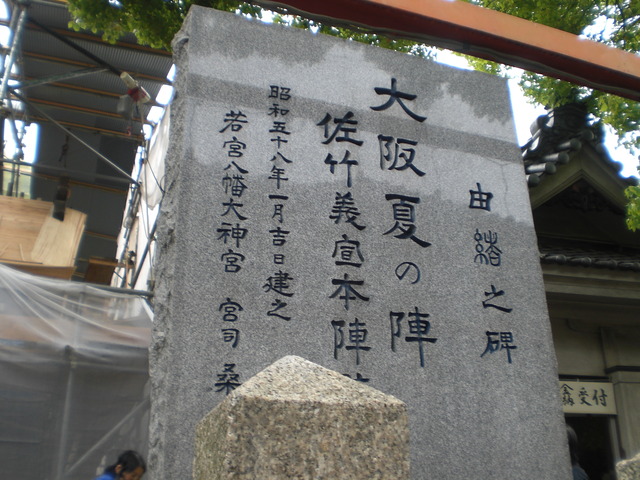 由緒之碑
大阪夏の陣
佐竹義宣本陣
昭和五十八年一月吉日建之
若宮八幡大神宮 宮司 桑
受付